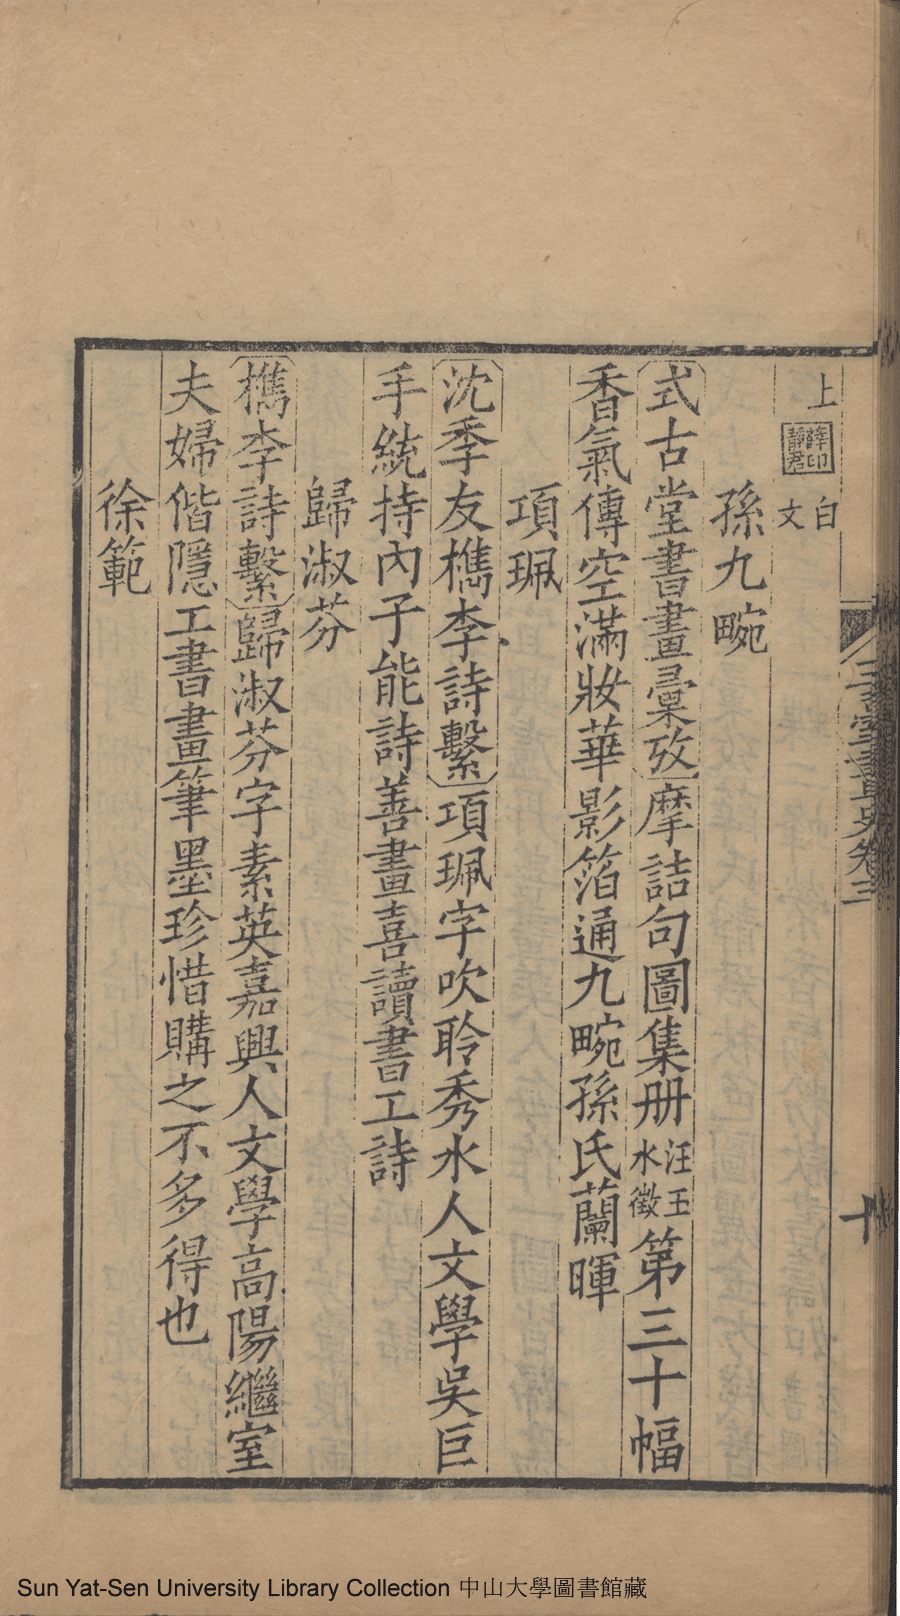 玉臺畫史卷三
十
上
薛印靜君
白文
孫九畹
式古堂書畫彙攷摩詰句圖集册汪玉水徵第三十幅
香氣傳空滿妝華影箔通九畹孫氏蘭暉
項珮
沈季友檇李詩繫項珮字吹聆秀水人文學吳巨
手統持內子能詩善畫喜讀書工詩
歸淑芬
檇李詩繫歸淑芬字素英嘉興人文學高陽繼室
夫婦偕隱工書畫筆墨珍惜購之不多得也
徐範
Sun Yat-Sen University Library Collection 中山大學圖書館藏